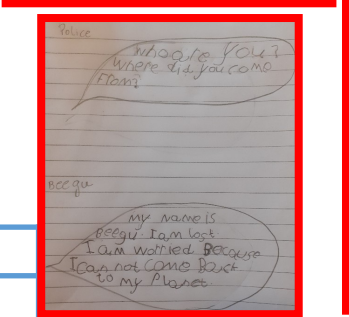 Police
who are you?
Where did you come
From?
Beegu
my name is
Beegu. I am lost.
I am worried Because
I can not come Back
to my Planet